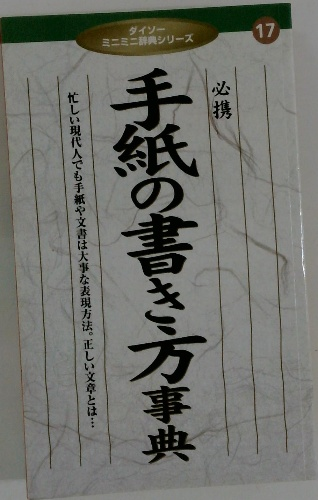 ダイソー
ミニミニ辞典シリーズ
17
必携
手紙の書き方事典
忙しい現代人でも手紙や文書は大事な表現方法。正しい文章とは…